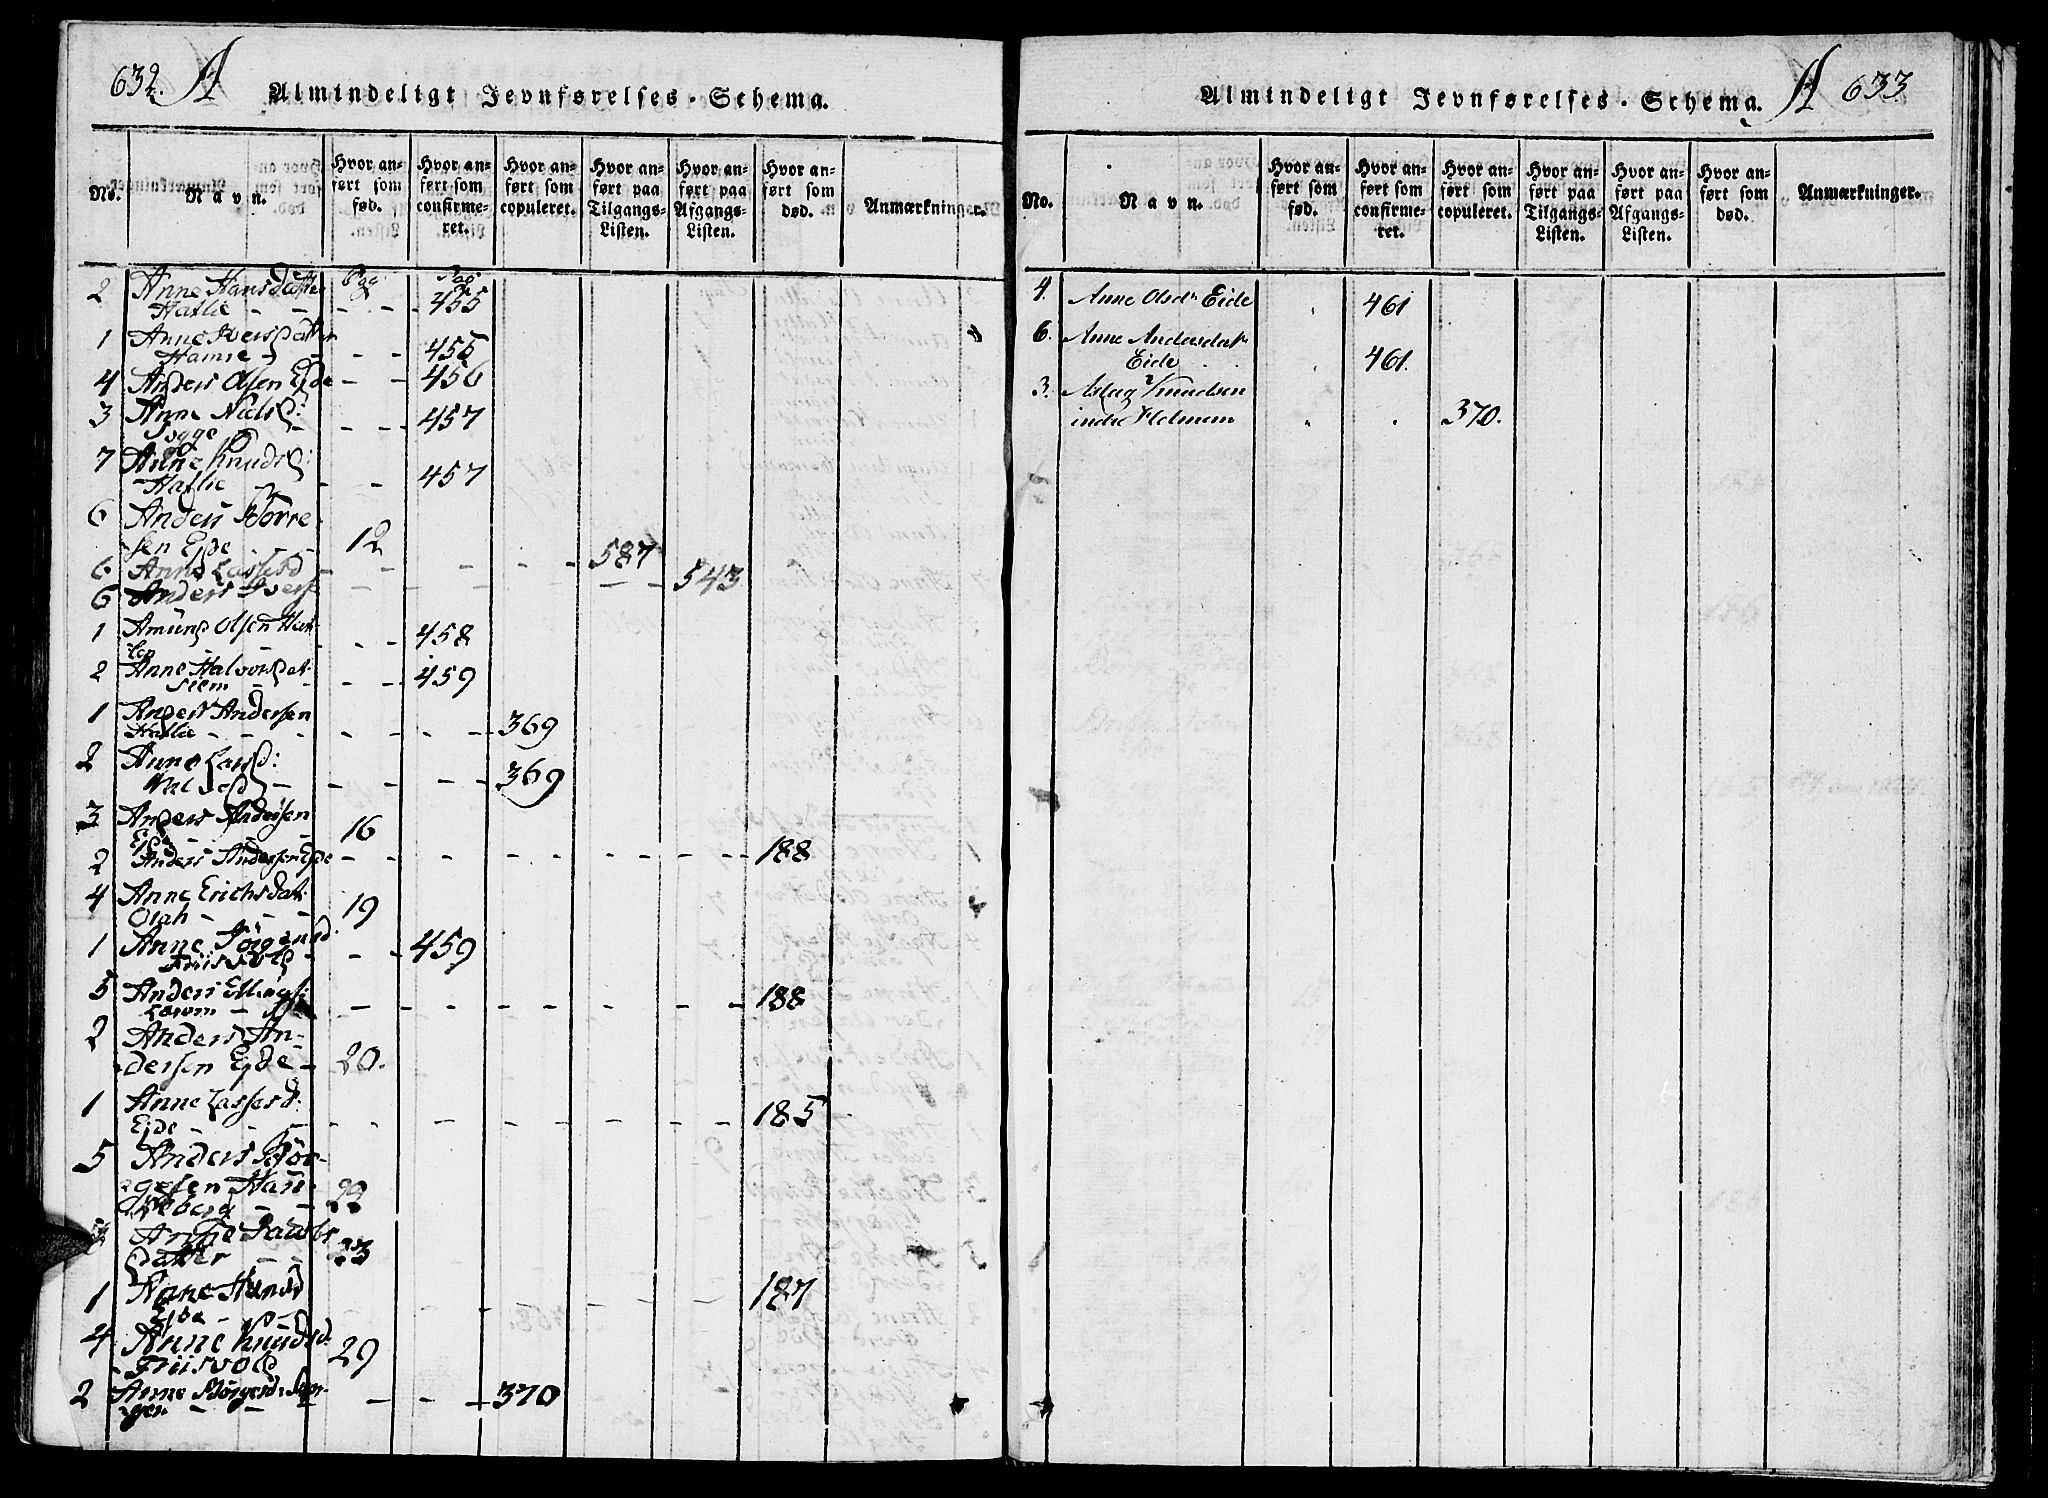 632. A
Almindeligt Jevnførelses-Schema.
No.
Navn.
Hvor an-
ført som
fød.
Hvor an-
ført som
confirme-
ret.
Hvor an-
ført som
copuleret.
Hvor an-
ført paa
Tilgangs-
Listen.
Hvor an-
ført paa
Afgangs-
Listen.
Hvor an-
ført som
død.
Anmærkninger.
2 Anne Hansdatter Pag Pag
Hatlie - - - 455
1 Anne Iversdatter
Hamre - - - 455
4 Anders Olsen Ejde - - 456
3 Anne Nielsd:
- - - 457
7 Anne Knudsd:
Hatlie - - - 457
6 Anders Børre-
sen Ejde - - 12
6 Anne Lassesd - - - - 587
6 Anders Ivers - - - - 543
1 Amund Olsen
- - - 458
2 Anne Halvorsdat:
- - - 459
1 Anders Andersen
Hatlie - - - - 369
2 Anne Larsd:
- - - - 369
3 Anders Andersen
Ejde - 16
2 Anders Andersen Ejde - - - - - - 188
4 Anne Erichsdat:
- - - 19
1 Anne Jörgensd:
Friisvold - - 459
5 Anders Ellings:
- - - - - - 188
2 Anders An-
dersen Ejde - 20.
1 Anne Lassesd:
Ejde - - - - - - 185
5 Anders Bör-
gesen Hau-
- - 22
datter - - 23
1 Ejde - - - - - 187
4 Anne Knudsd.
Friisvold 29
2 Anne
- - - - 370
A 633
Almindeligt Jevnførelses-Schema.
No.
Navn.
Hvor an-
ført som
fød.
Hvor an-
ført som
confirme-
ret.
Hvor an-
ført som
copuleret.
Hvor an-
ført paa
Tilgangs-
Listen.
Hvor an-
ført paa
Afgangs-
Listen.
Hvor an-
ført som
død.
Anmærkninger.
4. Anne Olsdr Eide 461
6. Anne Andersdatr
Eide 461.
3. Aslag Knudsen
indre Holmem 370.